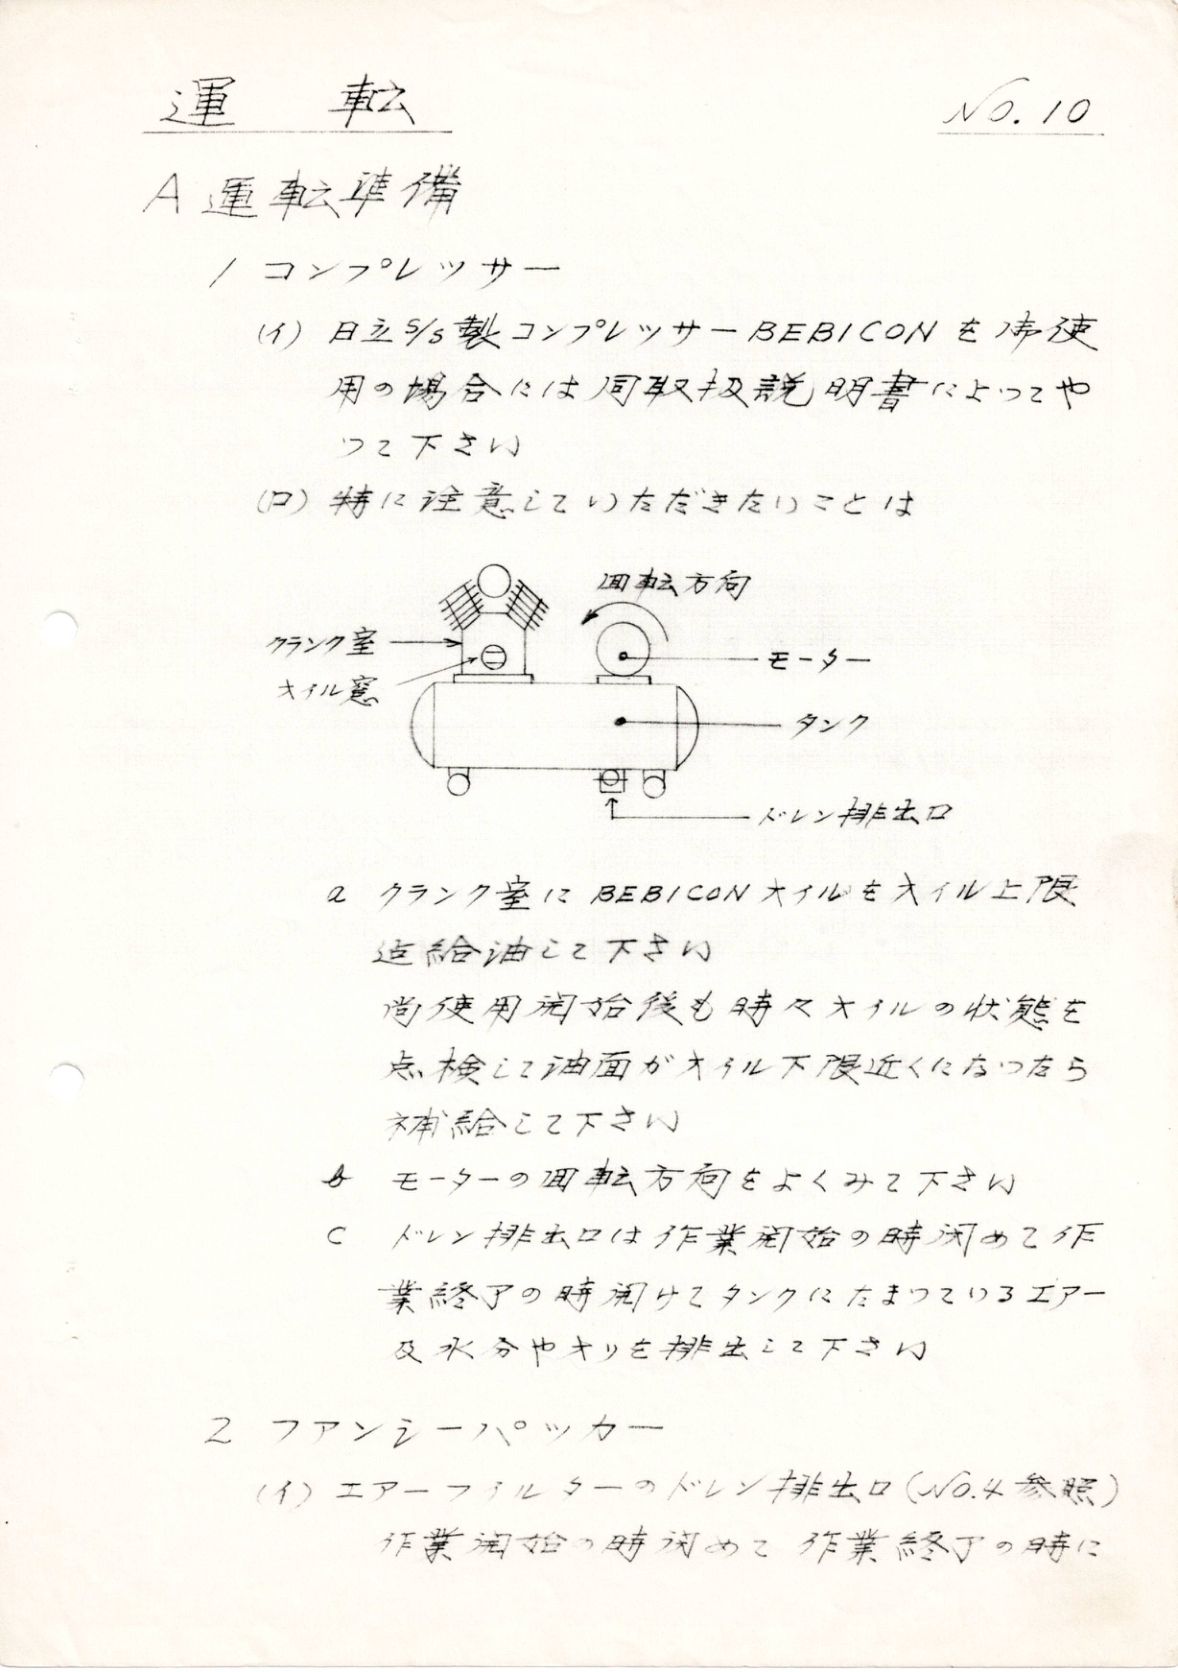 運 転
NO. 10
A 運転準備
1 コンプレッサー
(イ) 日立S/S製コンプレッサーBEBICONを御使
用の場合には同取扱説明書によってや
って下さい
(ロ) 特に注意していただきたいことは
回転方向
クランク室
オイル窓
モーター
タンク
ドレン排出口
a クランク室にBEBICONオイルをオイル上限
迄給油して下さい
尚使用開始後も時々オイルの状態を
点検して油面がオイル下限近くになったら
補給して下さい
b モーターの回転方向をよくみて下さい
c ドレン排出口は作業開始の時閉めて作
業終了の時開けてタンクにたまっているエアー
及水分やオリを排出して下さい
2 ファンシーパッカー
(イ) エアーフィルターのドレン排出口(NO.4参照)
作業開始の時閉めて作業終了の時に